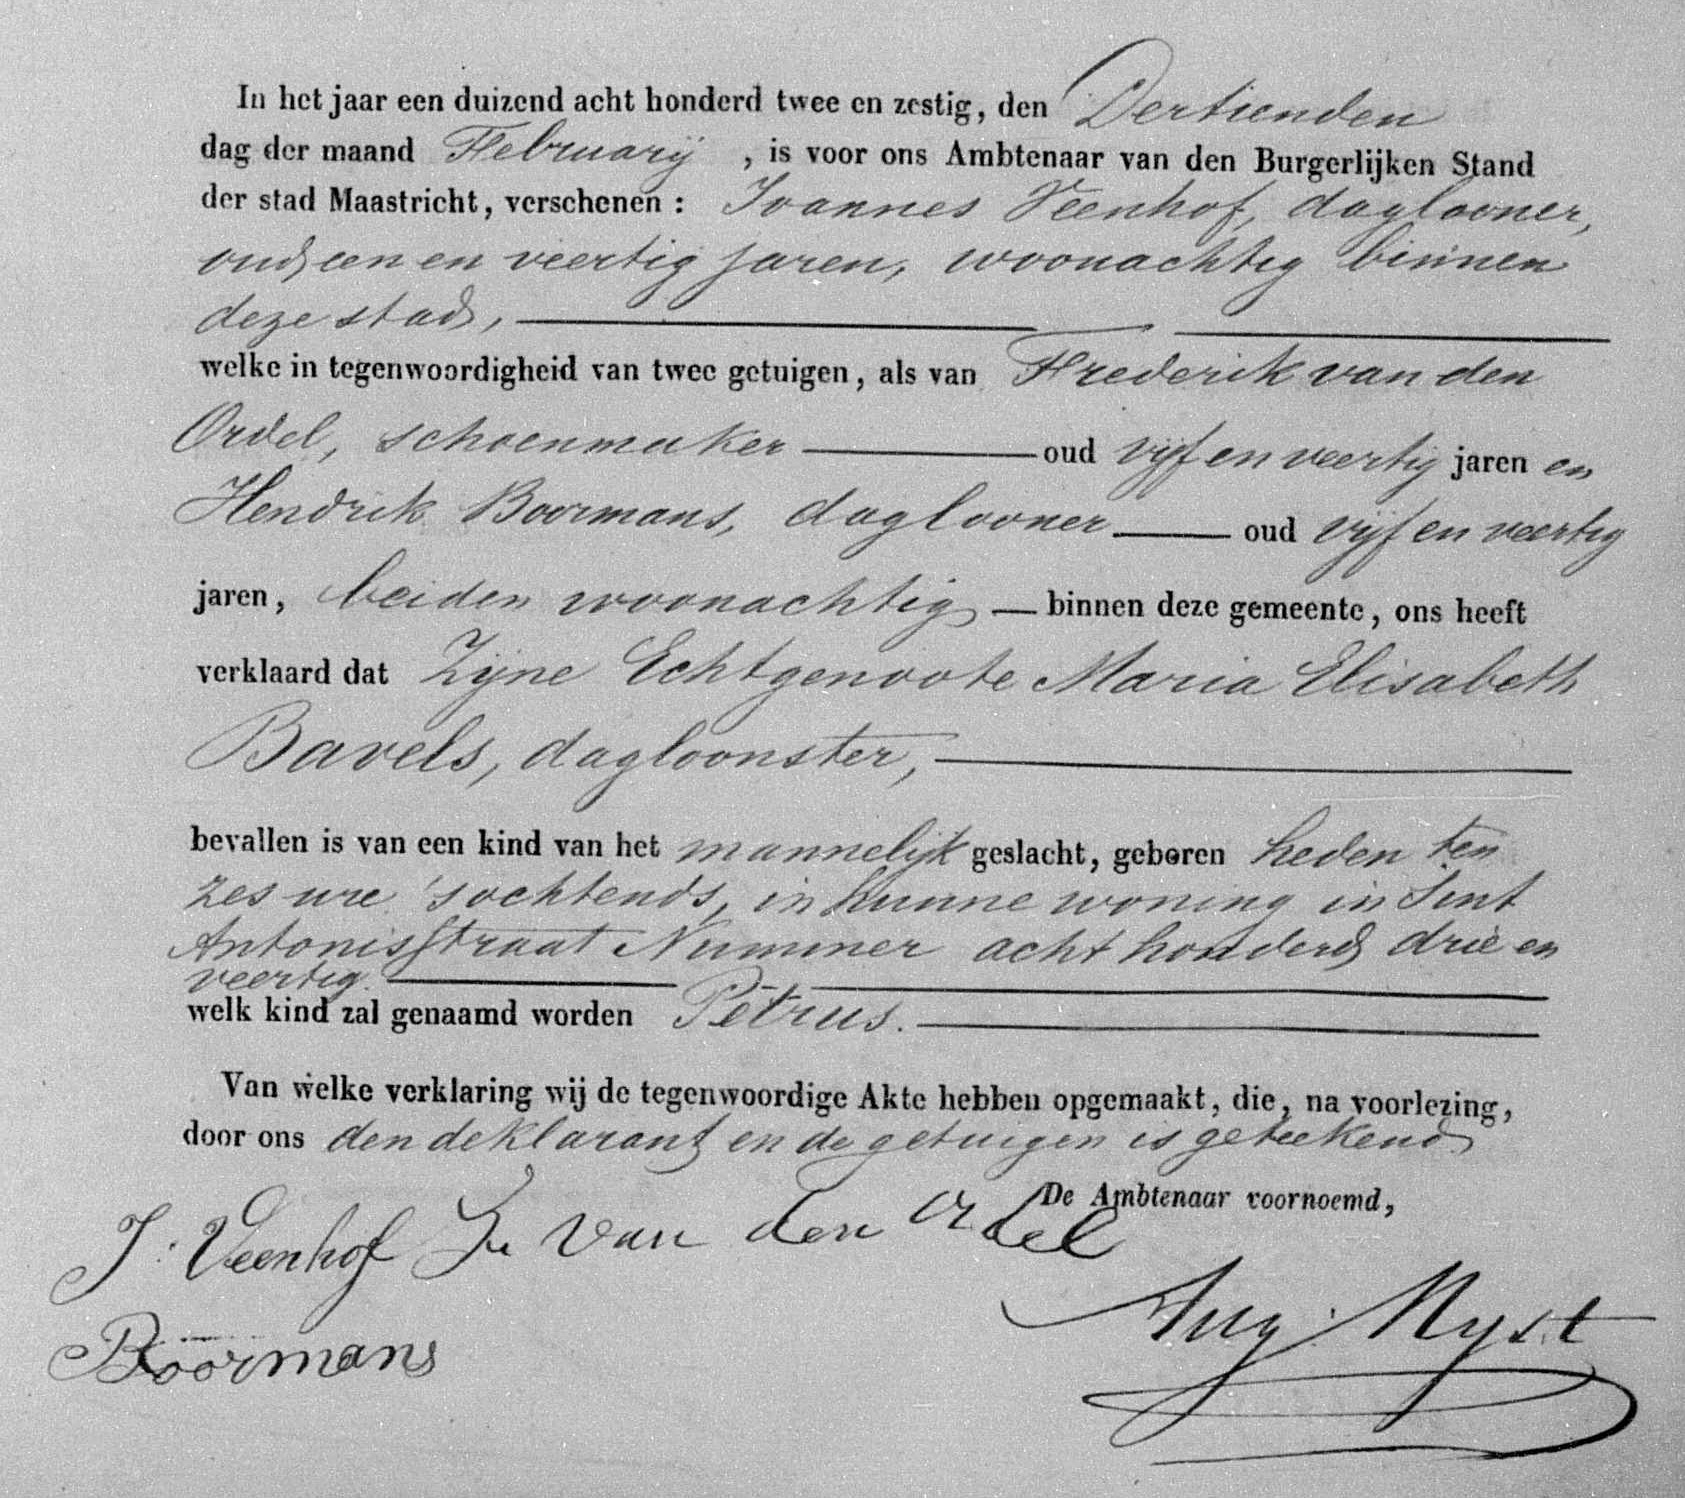 In het jaar een duizend acht honderd twee en zestig, den Dertienden
dag der maand February , is voor ons Ambtenaar van den Burgerlijken Stand
der stad Maastricht, verschenen : Joannes Veenhof, daglooner,
oud een en veertig jaren, woonachtig binnen
deze stad,
welke in tegenwoordigheid van twee getuigen, als van Frederik van den
Ordel, schoenmaker oud vijf en veertig jaren en
Hendrik Boormans, daglooner oud vijf en veertig
jaren, beiden woonachtig binnen deze gemeente, ons heeft
verklaard dat Zijne Echtgenoote Maria Elisabeth
Bavels, dagloonster,
bevallen is van een kind van het mannelijk geslacht, geboren heden ten
zes ure 'sochtends, in hunne woning in Sint
Antonisstraat Nummer acht honderd drie en
veertig.
welk kind zal genaamd worden Petrus.
Van welke verklaring wij de tegenwoordige Akte hebben opgemaakt, die, na voorlezing,
door ons den deklarant en de getuigen is geteekend
De Ambtenaar voornoemd,
J. Veenhof F van den Ordel
Boormans
Aug. Nyst